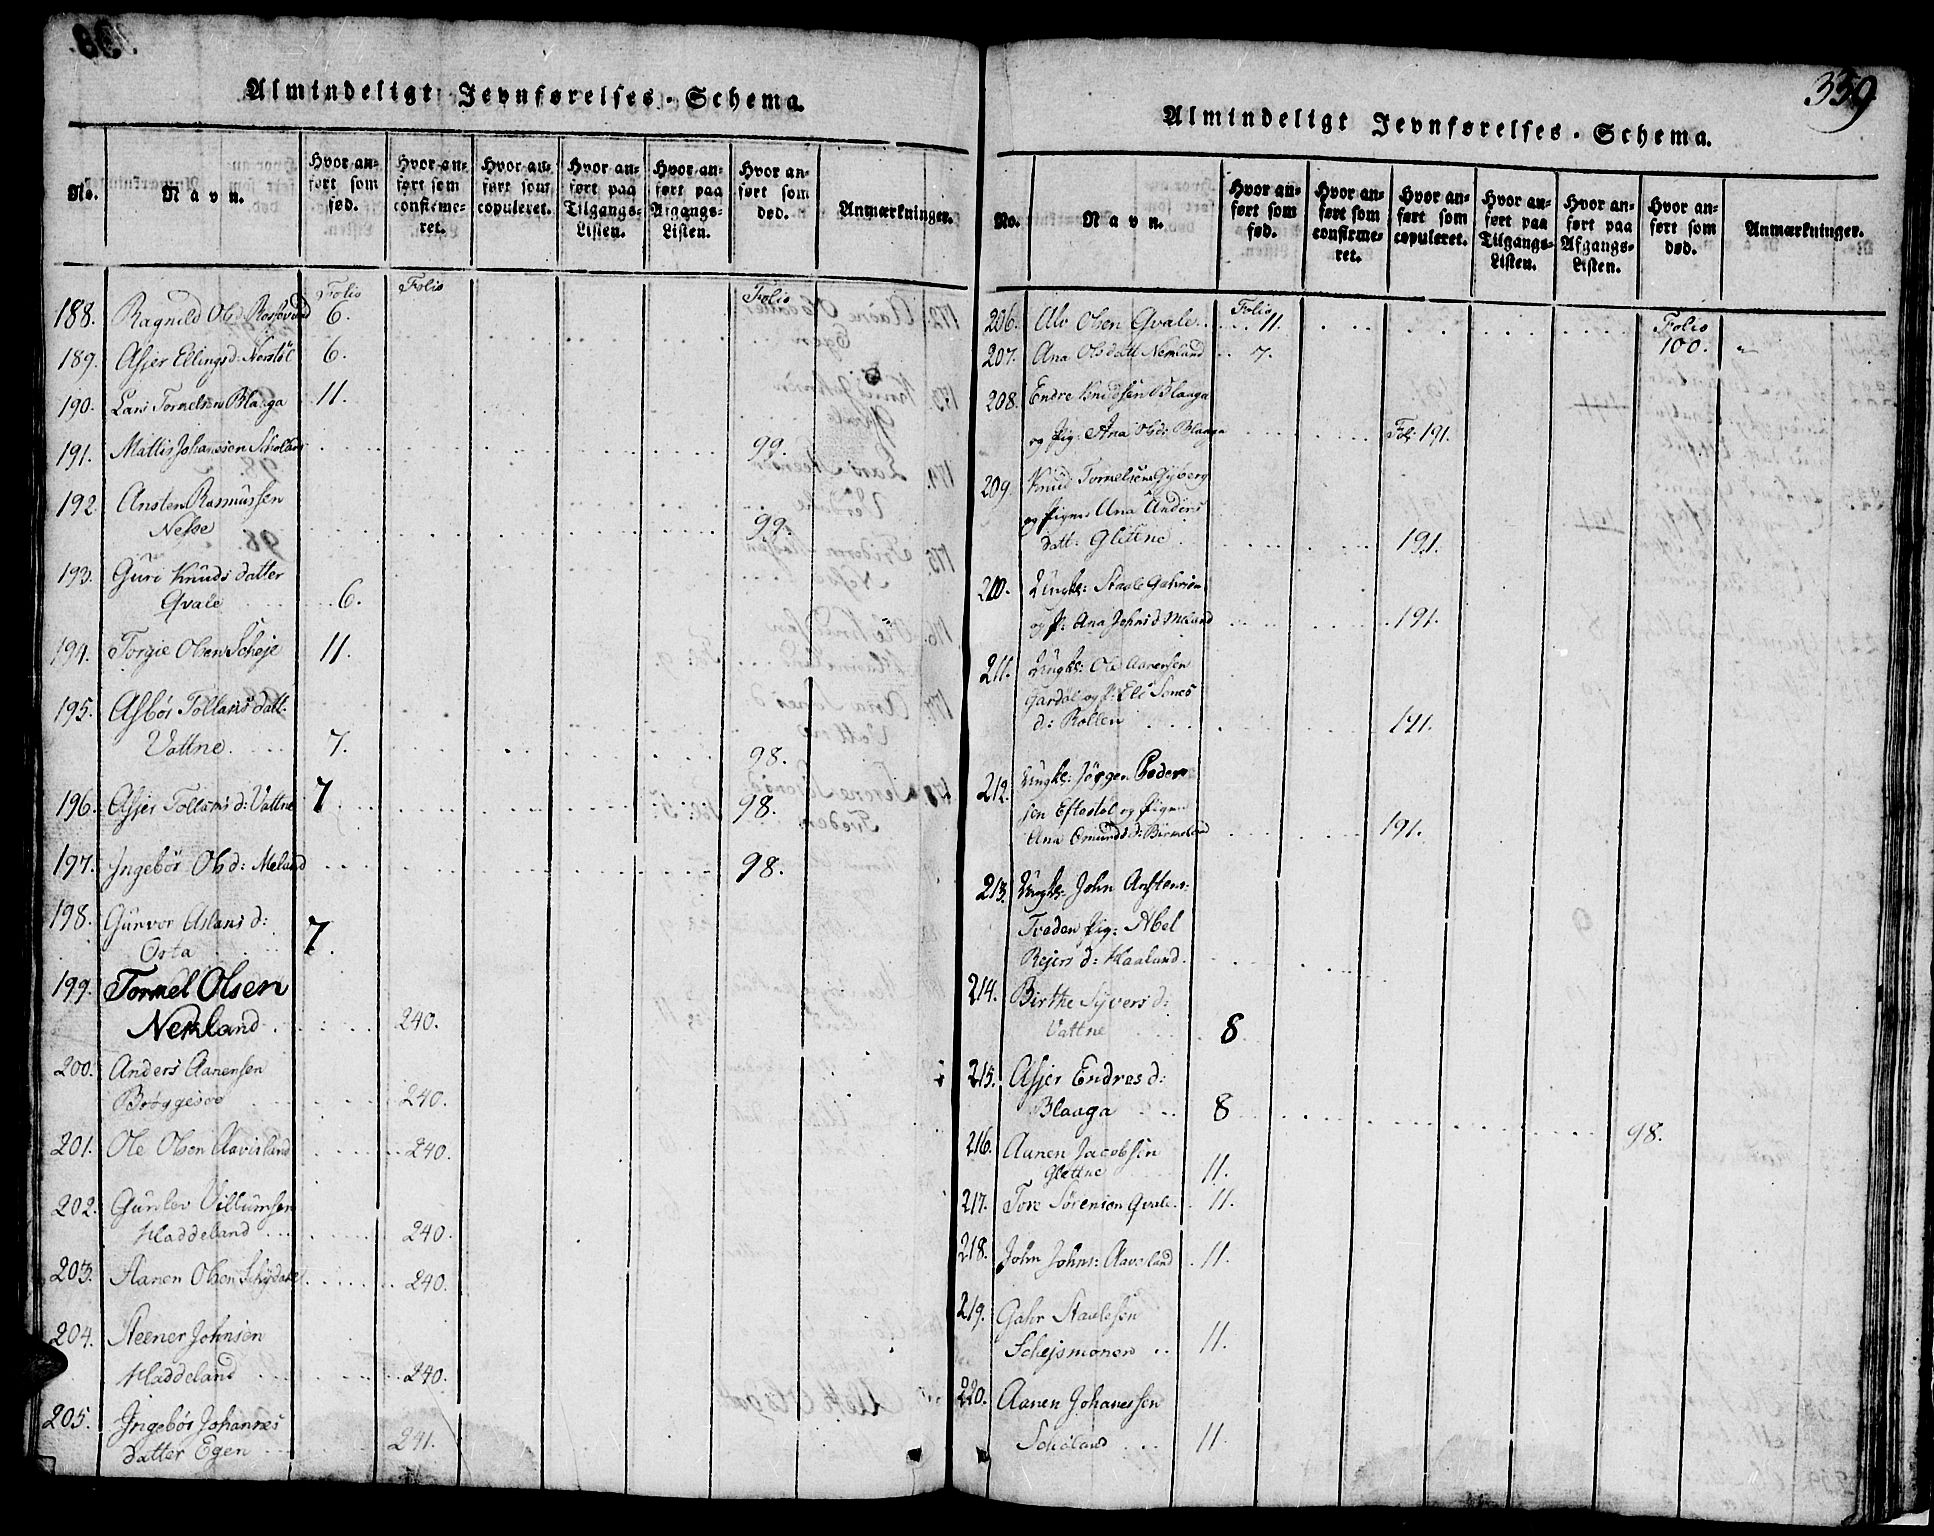 Almindeligt Jevnførelses-Schema.
No. Navn. Hvor anført som fød. Hvor anført som confirmeret. Hvor anført som copuleret. Hvor anført paa Tilgangs-Listen. Hvor anført paa Afgangs-Listen. Hvor anført som død. Anmærkninger.
Folio Folio Folio
188. Ragnild Olsd 6.
189. Asjer Ellingsd: Nerstøl 6.
190. Lars Tormelsen Blaaga 11.
191. Mattis Johannesen 99.
192 Ansten Rasmussen
Nesse 99.
193. Guri Knuds datter
Qvale 6.
194. Torgie Olsen Scheje 11.
195. Asbør Tollans datt.
Vattne. 7. 98.
196. Asjer Tollans d: Vattne 7. 98.
197. Ingebør Olsd: Meland 98.
198. Gunvor Aslans d:
Osta 7.
199. Tormel Olsen
Nepland 240.
200. Anders Aanensen
240.
201. Ole Olsen 240.
202. Gunlev Vilbumsen
Haddeland 240.
203. Aanen Olsen 240.
204. Steener Johnsen
Haddeland 240.
205. Ingebør Johannes
datter Egen 241.
359
Almindeligt Jevnførelses-Schema.
No. Navn. Hvor anført som fød. Hvor anført som confirmeret. Hvor anført som copuleret. Hvor anført paa Tilgangs-Listen. Hvor anført paa Afgangs-Listen. Hvor anført som død. Anmærkninger.
Folio Folio
206. Alv Olsen Qvale 11.
207. Ana Olsdatt 7. 100. "
208. Endre Knudsen Blaaga
og Pig: Ana Olsd: Blaaga Fol: 191.
209. Knud Tormelsen
og Pigen Ana Anders
datt: Glettne 191.
210. Ungk: Staale
og P: Ana Johns d: Meland 191.
211. Ungk: Ole Aanensen
og P: Eli
d: Røllen 191.
212. Ungk: Jørgen Peder
sen Eftestøl og Pigen
Ana Omunds d: 191.
213. Ungk: John Anstens:
Træden Pig: Abel
Rejers d: Kaaland.
214. Birthe Syvers d:
Vattne 8
215. Asjer Endres d:
Blaaga 8 98.
216. Aanen Jacobsen
Glettne 11.
217. Tore Sørensen Qvale. 11.
218. John Johns: 11.
219. Gahr Staalesen
Schejsmonen 11.
220. Aanen Johanessen
11.